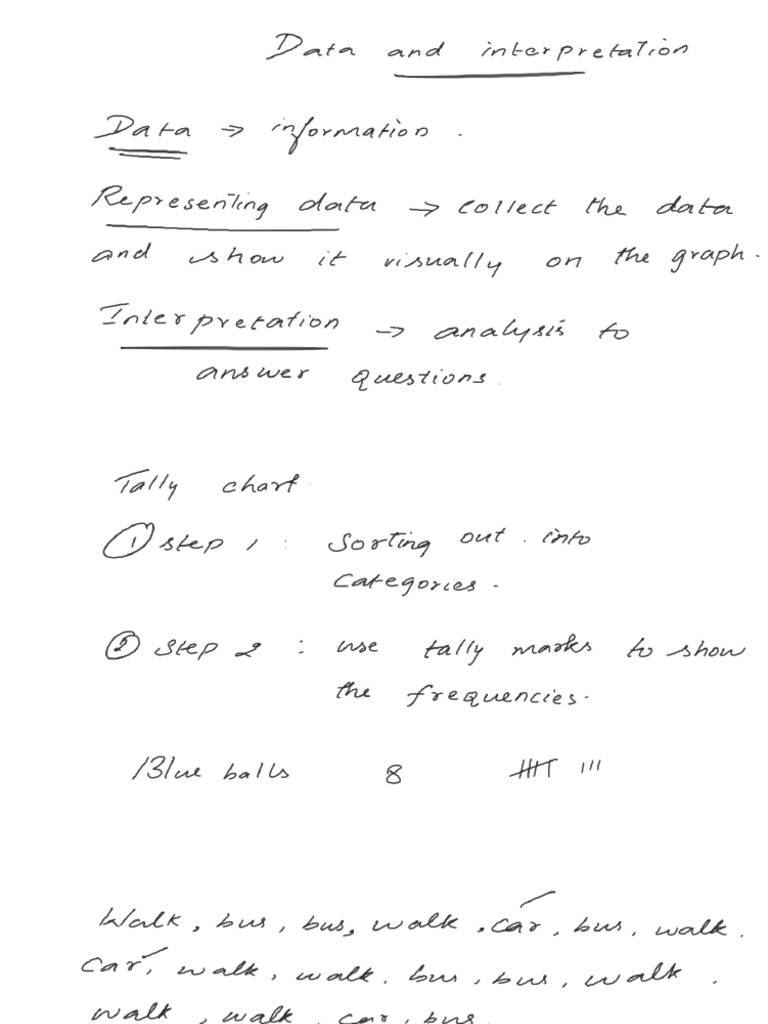 Data and interpretation
Data → information.
Representing data → collect the data
and show it visually on the graph.
Interpretation → analysis to
answer questions.
Tally chart
① Step 1 : Sorting out into
Categories.
② Step 2 : use tally marks to show
the frequencies.
Blue balls 8 |||| |||
Walk, bus, bus, walk, car, bus, walk.
Car, walk, walk, bus, bus, walk.
walk, walk, car, bus.